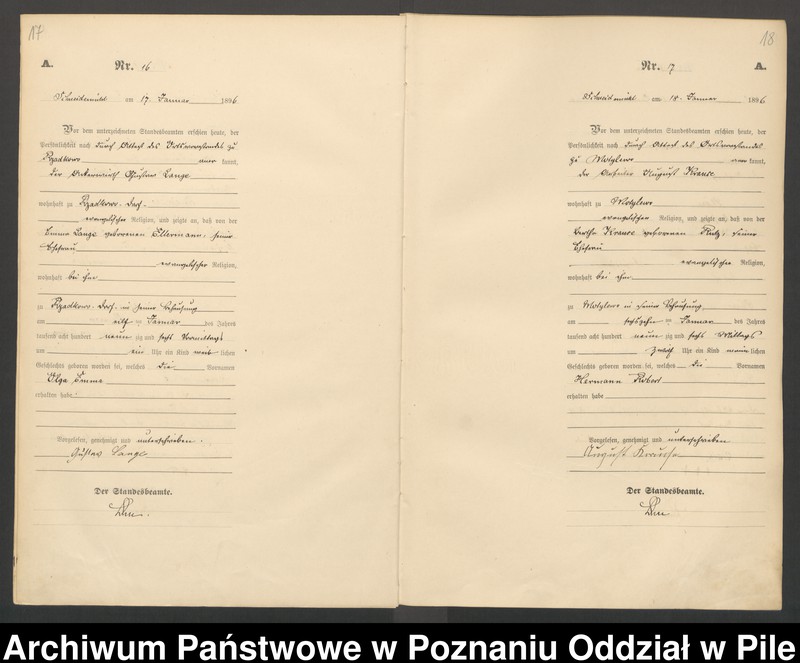 17
A.
Nr. 16
Schneidemühl am 17. Januar 1896
Vor dem unterzeichneten Standesbeamten erschien heute, der
Persönlichkeit nach durch Attest des Ortsvorstandes zu
Rzadkowo kannt,
der Gustav Lange
wohnhaft zu Rzadkowo Dorf.
evangelischer Religion, und zeigte an, daß von der
Emma Lange geborenen Ellermann, seiner
Ehefrau
evangelischer Religion,
wohnhaft bei ihm
zu Rzadkowo Dorf in seiner Behausung
am elf ten Januar des Jahres
tausend acht hundert neun zig und sechs Vormittags
um ein Uhr ein Kind weib lichen
Geschlechts geboren worden sei, welches die Vornamen
Olga Emma
erhalten habe.
Vorgelesen, genehmigt und unterschrieben.
Gustav Lange
Der Standesbeamte.
18
Nr. 17
A.
Schneidemühl am 18. Januar 1896
Vor dem unterzeichneten Standesbeamten erschien heute, der
Persönlichkeit nach durch Attest des Ortsvorstandes
zu Motylewo kannt,
der Arbeiter August Krause
wohnhaft zu Motylewo
evangelischer Religion, und zeigte an, daß von der
Krause geborenen seiner
Ehefrau
evangelischer Religion,
wohnhaft bei ihm
zu Motylewo in seiner Behausung
am sechszehn ten Januar des Jahres
tausend acht hundert neun zig und sechs Mittags
um zwölf Uhr ein Kind männ lichen
Geschlechts geboren worden sei, welches die Vornamen
Hermann Robert
erhalten habe
Vorgelesen, genehmigt und unterschrieben
August Krause
Der Standesbeamte.
Archiwum Państwowe w Poznaniu Oddział w Pile